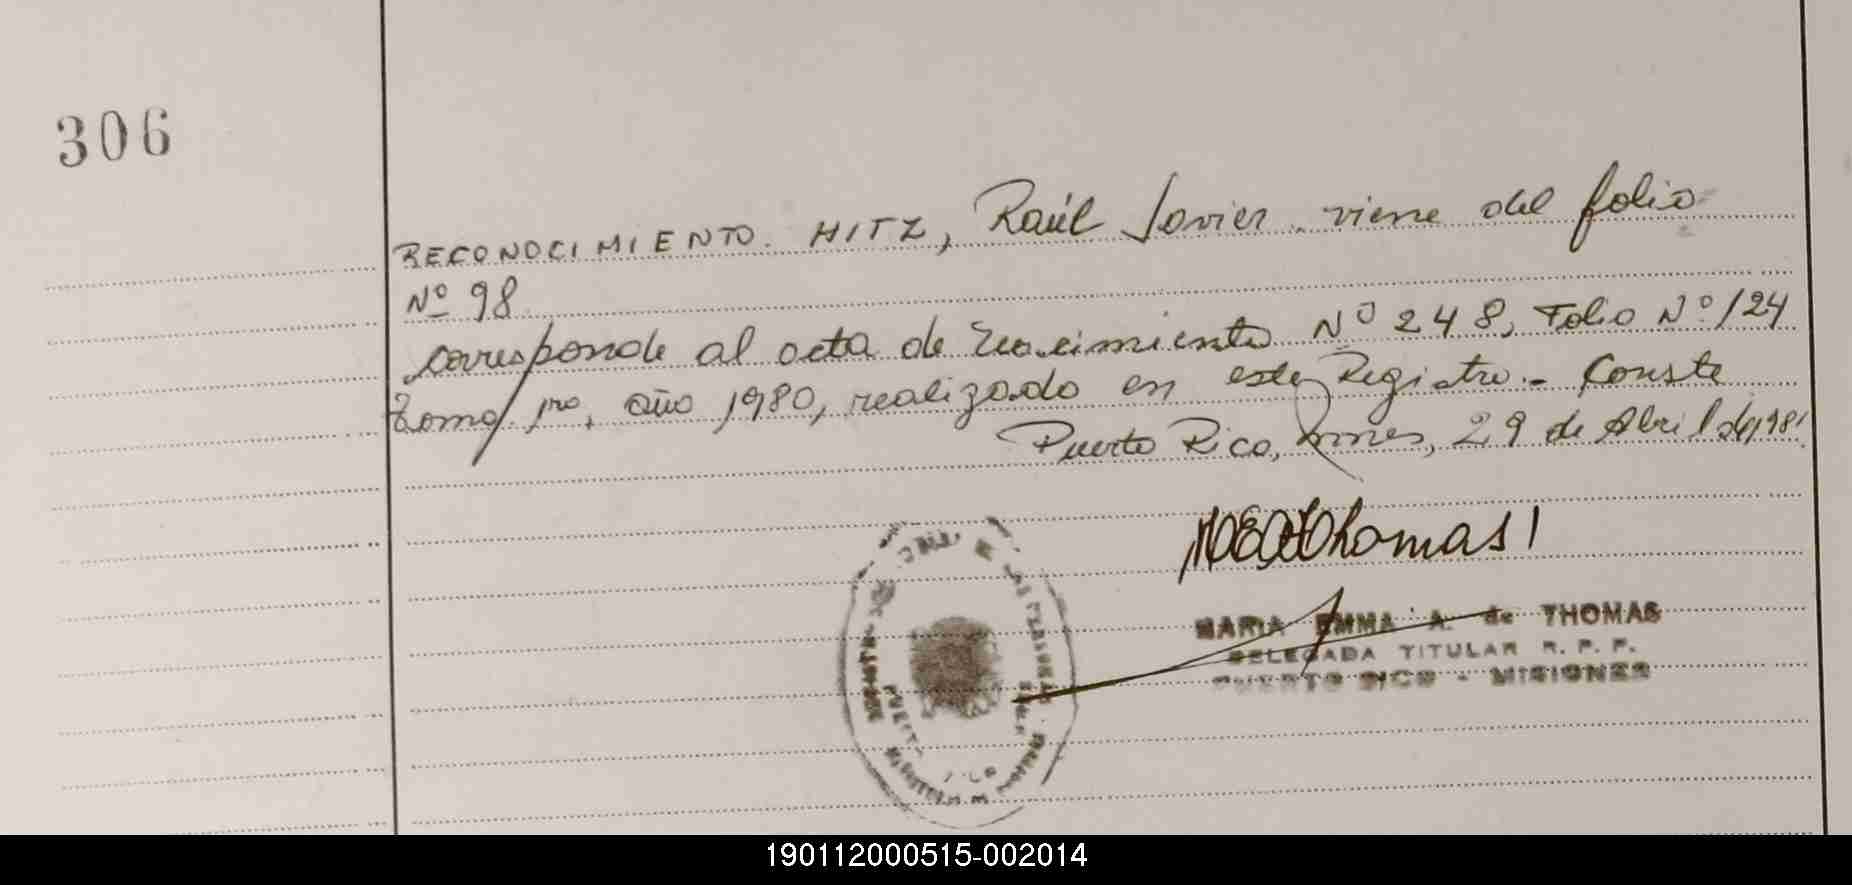 306
RECONOCIMIENTO. HITZ, Raúl Javier. viene del folio
Nº 98
corresponde al acta de Nacimiento Nº 248, Folio Nº 124
Tomo 1ro, año 1980, realizado en este Registro.- Conste
Puerto Rico, Mnes, 29 de Abril de 1981
Thomas
MARIA EMMA A. de THOMAS
DELEGADA TITULAR R. P. P.
PUERTO RICO - MISIONES
190112000515-002014